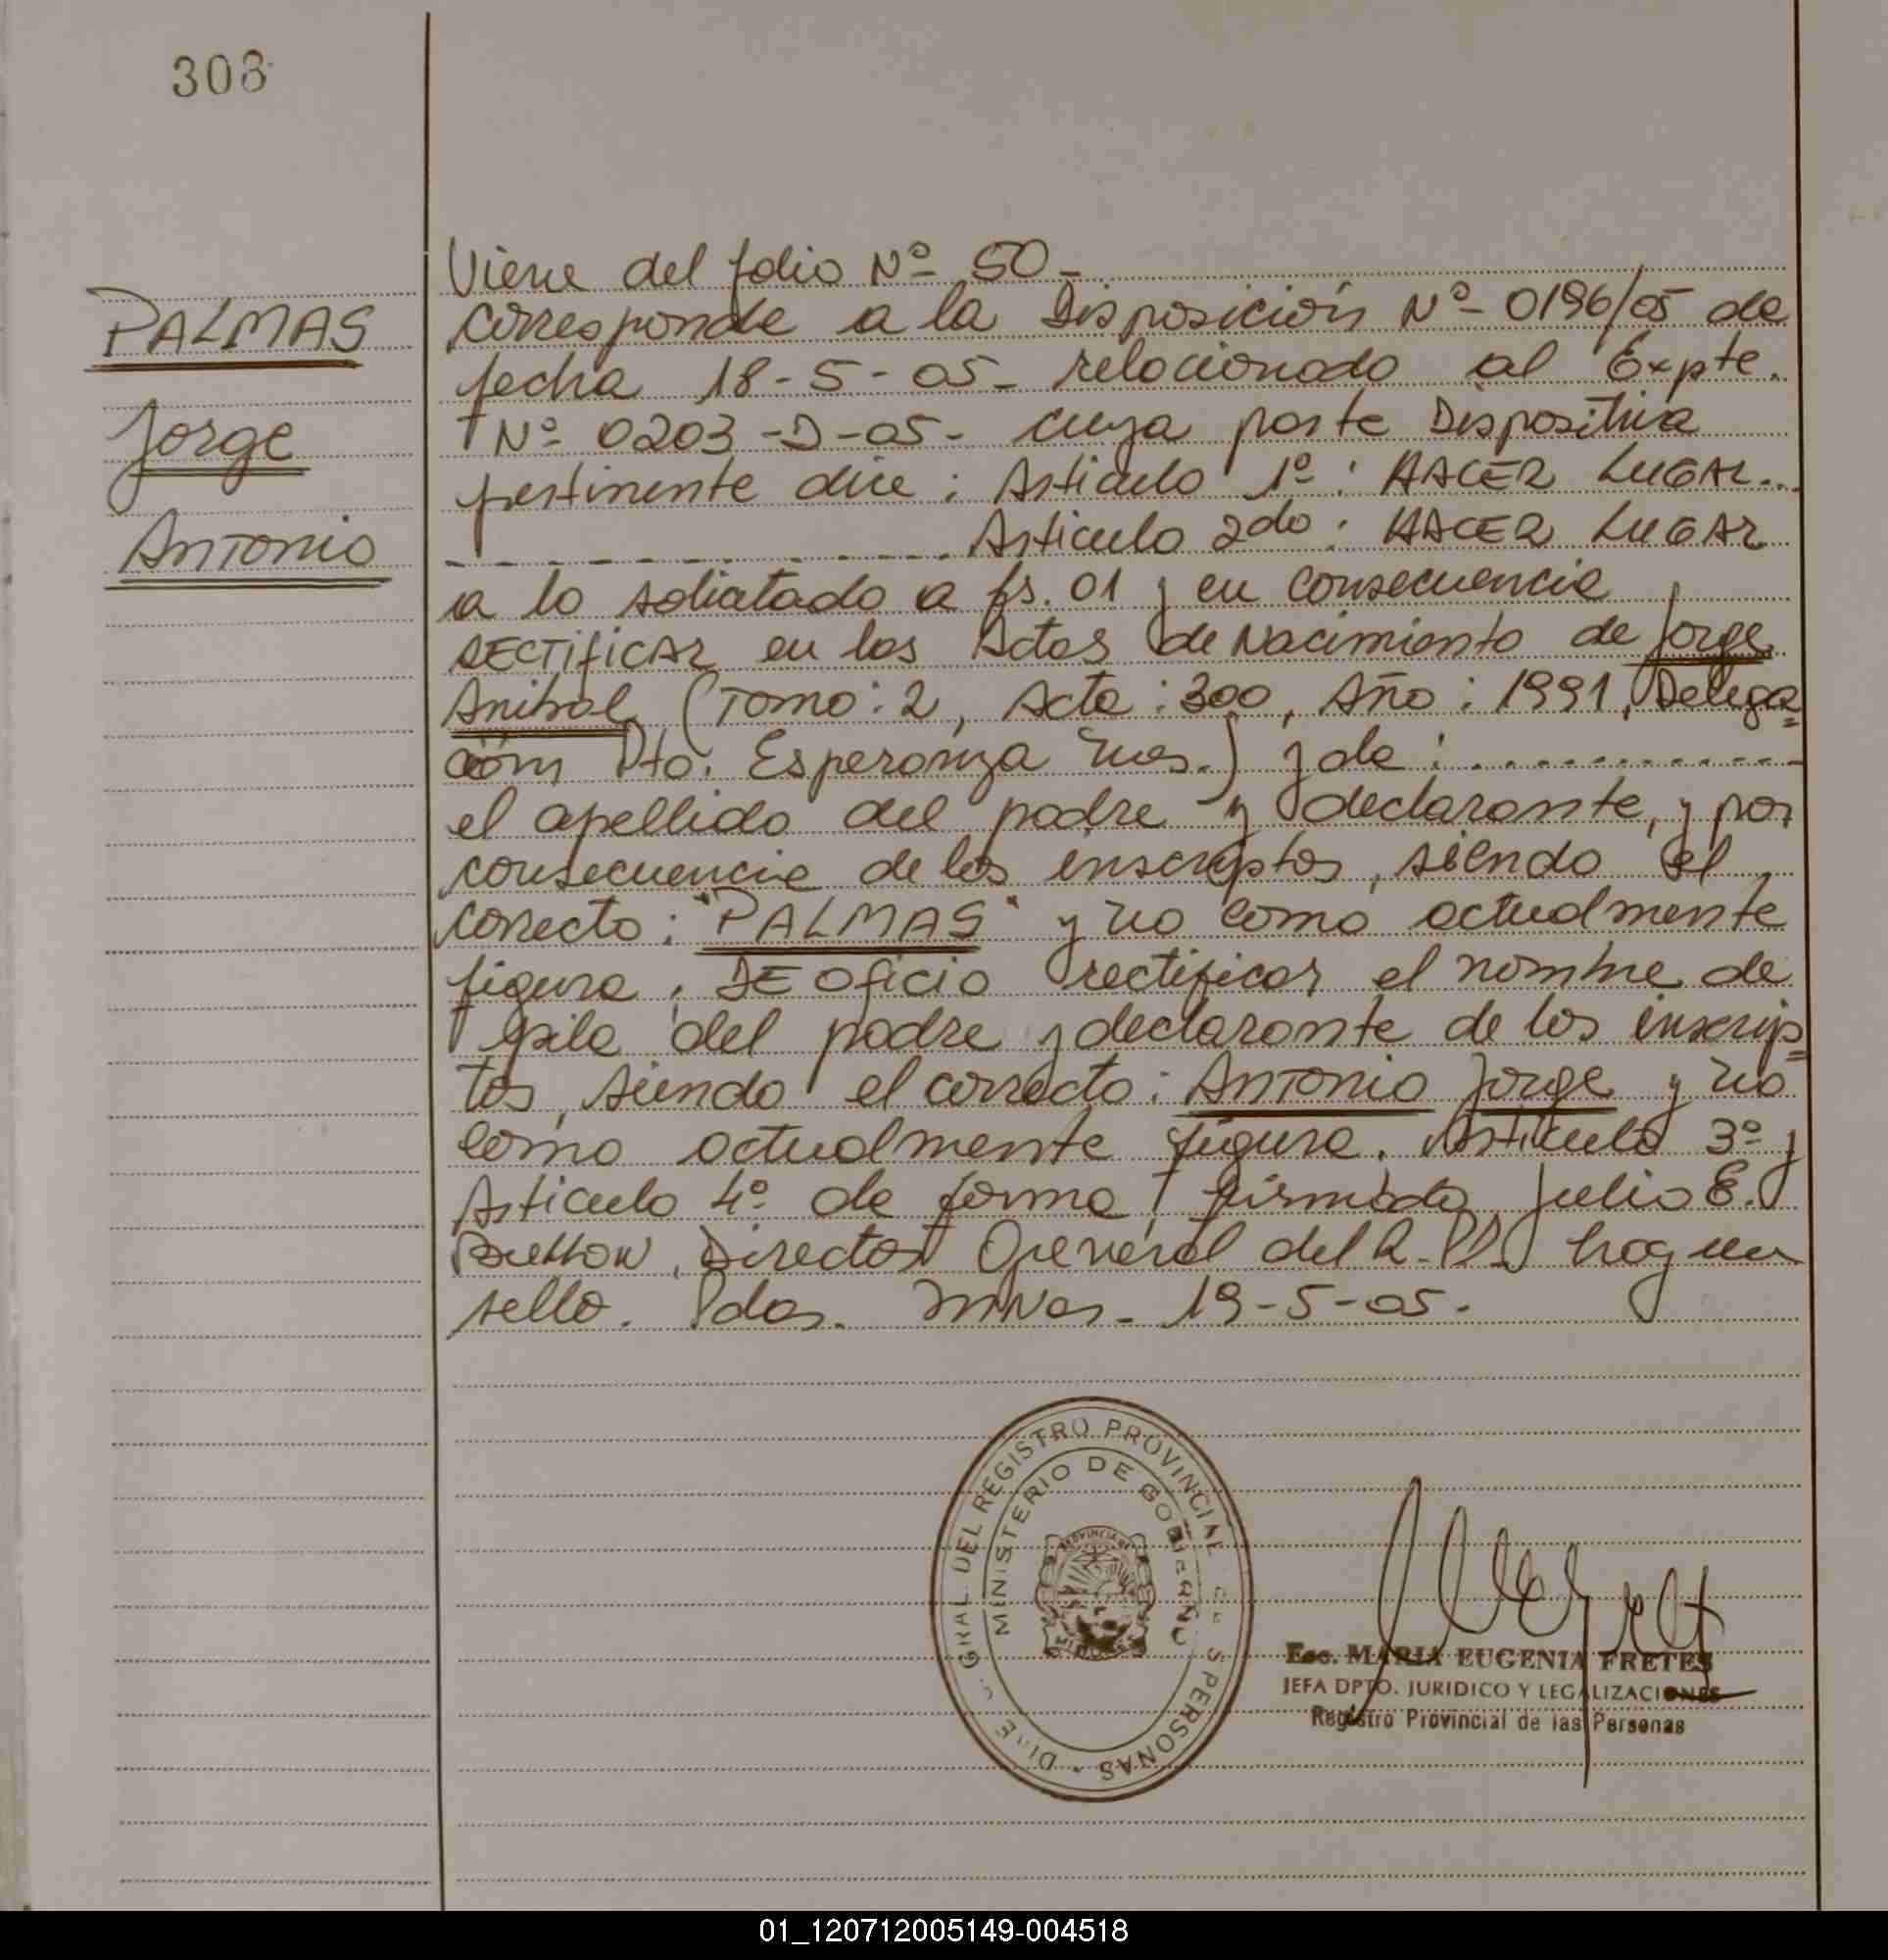 308
PALMAS
Jorge
Antonio
Viene del folio Nº 50-
corresponde a la Disposición Nº- 0196/05 de
fecha 18-5-05- relacionado al Expte.
Nº 0203-D-05- cuya parte Dispositiva
pertinente dice: Articulo 1º: HACER LUGAR...
Articulo 2do: HACER LUGAR
a lo solicitado a fs. 01 y en consecuencia
RECTIFICAR en las Actas de Nacimiento de Jorge
Anibal (Tomo: 2, Acta: 300, Año: 1991, Delega=
ción Pto. Esperanza Mnes.) y de: ............
el apellido del padre y declarante, y por
consecuencia de los inscriptos, siendo el
correcto: "PALMAS" y no como actualmente
figura. DE Oficio rectificar el nombre de
pila del padre y declarante de los inscrip=
tos, siendo el correcto: Antonio Jorge y no
como actualmente figura. Articulo 3º y
Articulo 4º de forma, firmado Julio E.
Director General del R.P.P. hay un
sello. Pdas. Mnes- 19-5-05.
GRAL. DEL REGISTRO PROVINCIAL PERSONAS
MINISTERIO DE GOBIERNO
PROVINCIA DE
MISIONES
Esc. MARIA EUGENIA FRETES
JEFA DPTO. JURIDICO Y LEGALIZACIONES
Registro Provincial de las Personas
01_120712005149-004518